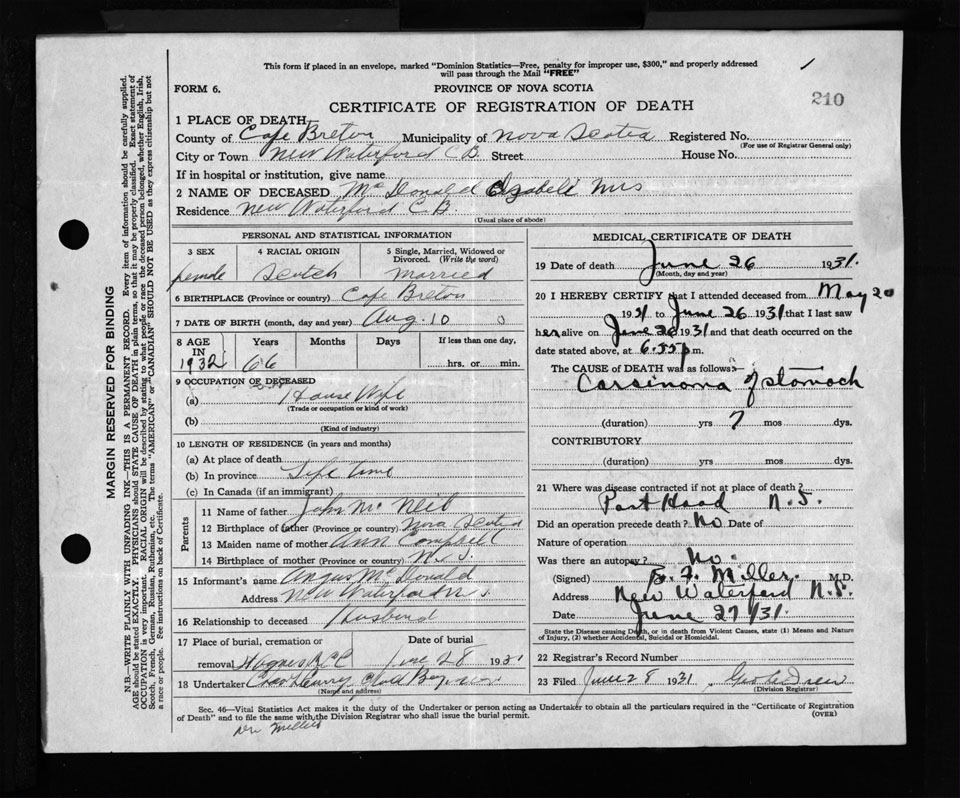 This form if placed in an envelope, marked "Dominion Statistics—Free, penalty for improper use, $300," and properly addressed
will pass through the Mail "FREE"
FORM 6. PROVINCE OF NOVA SCOTIA
210
CERTIFICATE OF REGISTRATION OF DEATH
1 PLACE OF DEATH
County of Cape Breton Municipality of Nova Scotia Registered No.
(For use of Registrar General only)
City or Town New Waterford C B Street House No.
If in hospital or institution, give name
2 NAME OF DECEASED McDonald Isabell Mrs
Residence New Waterford C.B.
(Usual place of abode)
PERSONAL AND STATISTICAL INFORMATION
3 SEX 4 RACIAL ORIGIN 5 Single, Married, Widowed or
Divorced. (Write the word)
female Scotch Married
6 BIRTHPLACE (Province or country) Cape Breton
7 DATE OF BIRTH (month, day and year) Aug. 10
8 AGE Years Months Days If less than one day,
IN
1932 66 hrs. or min.
9 OCCUPATION OF DECEASED
(a) House Wife
(Trade or occupation or kind of work)
(b)
(Kind of industry)
10 LENGTH OF RESIDENCE (in years and months)
(a) At place of death
(b) In province Life time
(c) In Canada (if an immigrant)
Parents
11 Name of father John McNeil
12 Birthplace of father (Province or country) Nova Scotia
13 Maiden name of mother Ann Campbell
14 Birthplace of mother (Province or country) N. S.
15 Informant's name Angus McDonald
Address New Waterford N.S.
16 Relationship to deceased Husband
17 Place of burial, cremation or Date of burial
removal June 28 1931
18 Undertaker Glace Bay
(Name and address)
MEDICAL CERTIFICATE OF DEATH
19 Date of death June 26 1931.
(Month, day and year)
20 I HEREBY CERTIFY that I attended deceased from May 20
1931 to June 26 1931 that I last saw
her alive on June 26 1931 and that death occurred on the
date stated above, at 6.55 p m.
The CAUSE of DEATH was as follows:—
Carsinoma of stomach
(duration) yrs 7 mos dys.
CONTRIBUTORY
(duration) yrs mos dys.
21 Where was disease contracted if not at place of death?
Port Hood N.S.
Did an operation precede death? No Date of
Nature of operation
Was there an autopsy? No.
(Signed) B. F. Miller. M.D.
Address New Waterford N.S.
Date June 27/31.
State the Disease causing Death, or in death from Violent Causes, state (1) Means and Nature
of Injury, (2) whether Accidental, Suicidal or Homicidal.
22 Registrar's Record Number
23 Filed June 28 1931
(Division Registrar)
Sec. 46—Vital Statistics Act makes it the duty of the Undertaker or person acting as Undertaker to obtain all the particulars required in the "Certificate of Registration
of Death" and to file the same with the Division Registrar who shall issue the burial permit. (OVER)
Dr. Miller
MARGIN RESERVED FOR BINDING
N.B.—WRITE PLAINLY WITH UNFADING INK—THIS IS A PERMANENT RECORD. Every item of information should be carefully supplied.
AGE should be stated EXACTLY. PHYSICIANS should STATE CAUSE OF DEATH in plain terms, so that it may be properly classified. Exact statement of
OCCUPATION is very important. RACIAL ORIGIN will be described by stating to what people or race the deceased person belonged, whether English, Irish,
Scotch, French, German, Russian, Ruthenian, etc. The terms "AMERICAN" or "CANADIAN" SHOULD NOT BE USED as they express citizenship but not
a race or people. See instructions on back of Certificate.